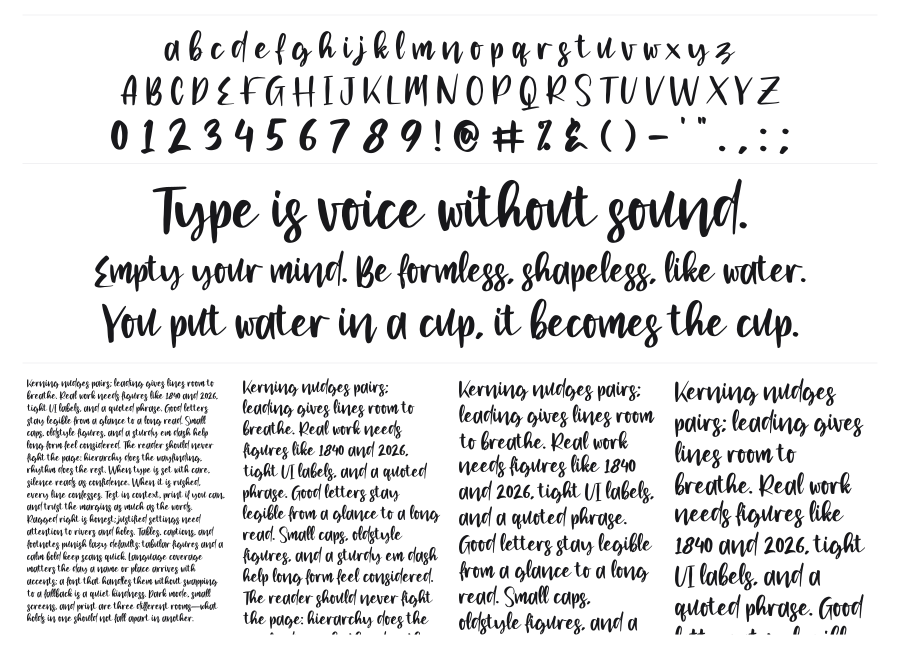 a b c d e f g h i j k l m n o p q r s t u v w x y z
A B C D E F G H I J K L M N O P Q R S T U V W X Y Z
0 1 2 3 4 5 6 7 8 9 ! @ # % & ( ) - ' " . , : ;
Type is voice without sound.
Empty your mind. Be formless, shapeless, like water.
You put water in a cup, it becomes the cup.
Kerning nudges pairs; leading gives lines room to
breathe. Real work needs figures like 1840 and 2026,
tight UI labels, and a quoted phrase. Good letters
stay legible from a glance to a long read. Small
caps, oldstyle figures, and a sturdy em dash help
long form feel considered. The reader should never
fight the page: hierarchy does the wayfinding,
rhythm does the rest. When type is set with care,
silence reads as confidence. When it is rushed,
every line confesses. Test in context, print if you can,
and trust the margins as much as the words.
Ragged right is honest; justified settings need
attention to rivers and holes. Tables, captions, and
footnotes punish lazy defaults; tabular figures and a
calm bold keep scans quick. Language coverage
matters the day a name or place arrives with
accents; a font that handles them without swapping
to a fallback is a quiet kindness. Dark mode, small
screens, and print are three different rooms—what
holds in one should not fall apart in another.
Kerning nudges pairs;
leading gives lines room to
breathe. Real work needs
figures like 1840 and 2026,
tight UI labels, and a quoted
phrase. Good letters stay
legible from a glance to a long
read. Small caps, oldstyle
figures, and a sturdy em dash
help long form feel considered.
The reader should never fight
the page: hierarchy does the
Kerning nudges pairs;
leading gives lines room
to breathe. Real work
needs figures like 1840
and 2026, tight UI labels,
and a quoted phrase.
Good letters stay legible
from a glance to a long
read. Small caps,
oldstyle figures, and a
Kerning nudges
pairs; leading gives
lines room to
breathe. Real work
needs figures like
1840 and 2026, tight
UI labels, and a
quoted phrase. Good